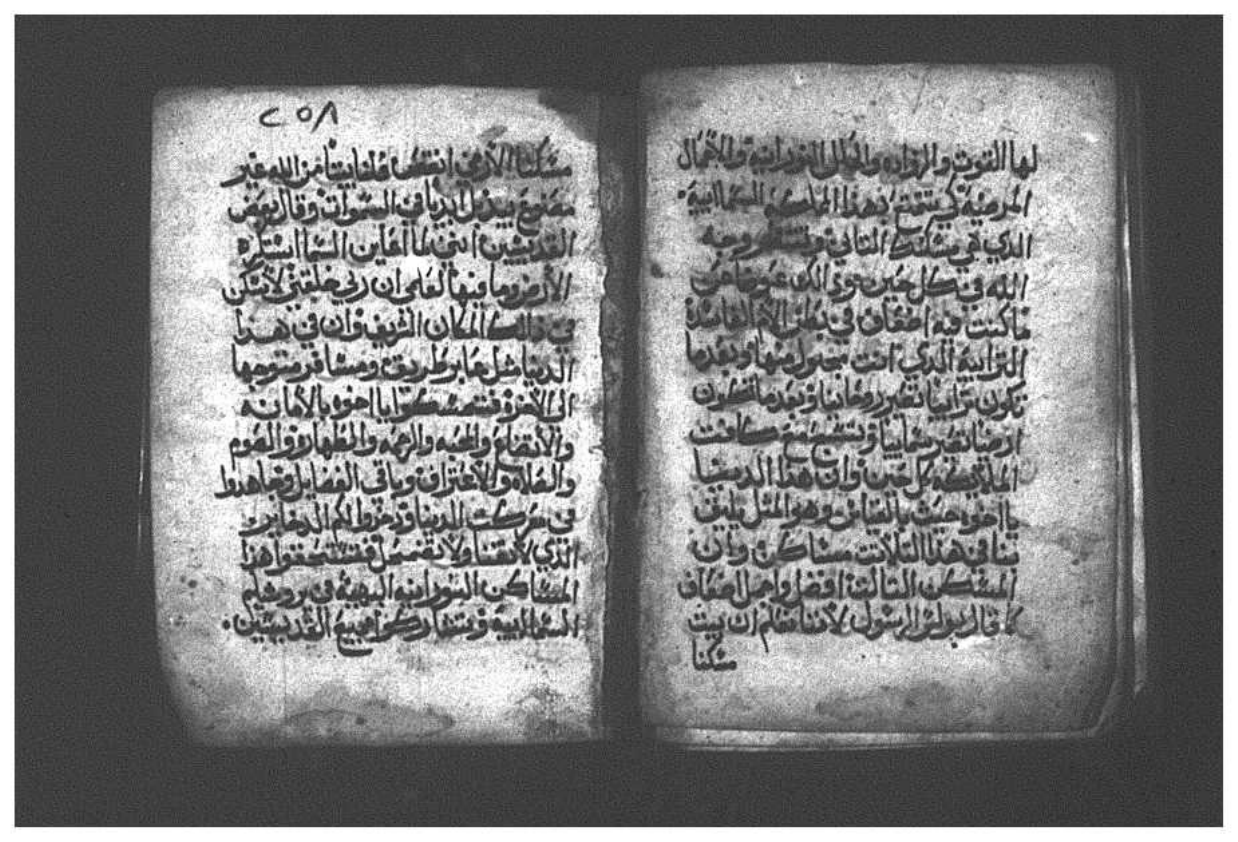 لها القوت والزواده والحلل النورانيه والاعمال
المرضيه كي تتمتع بهذا الملكوت السماييه
الذي هي مسكنك التاني وتنتظر وجه
الله في كل حين حوى الذى عوضا عن
ما كنت فيه اضعاف في بطن الام الفاسده
الترابيه الذي انت مجبول منها وبعدما
تكون ترابيا تصير روحانيا وبعد ما تكون
ارضيا تصير سماييا وتشبع مع كانت
الملايكه كل حين وان هذا الدنيا
يا اخوه حيث بالتباين وهو المثل يليق
بنا في هذا التلاتت مساكن وان
المسكن التالته افضل واجمل اضعاف
كما قال بولس الرسول لاننا نعلم ان بيت
مسكنا
٢٥٨
مسكنا الارضي انتقض فلنا بيتا من الله غير
مصنوع بيد بل ابديا في السموات وقال بعض
القديسين انني لما اعاين السما استكره
الارض وما فيها لعلمي ان ربي خلقني لاسكن
في ذالك المكان الشريف وان في هذا
الدنيا مثل عابر طريق ومسافر متوجها
الى الاخره فنتمسكوا يا اخوه بالامانه
والاتضاع والمحبه والرحمه والطهاره والصوم
والصلاه والاعتراف وباقي الفضايل وجاهدوا
في حركت الدنيا وتدخروا لكم الدخاير
الذي لا تفنا ولا تضمحل فتستحقوا هذا
المساكن النورانيه البهيه في يروشليم
السماييه وتشاركوا جميع القديسين.